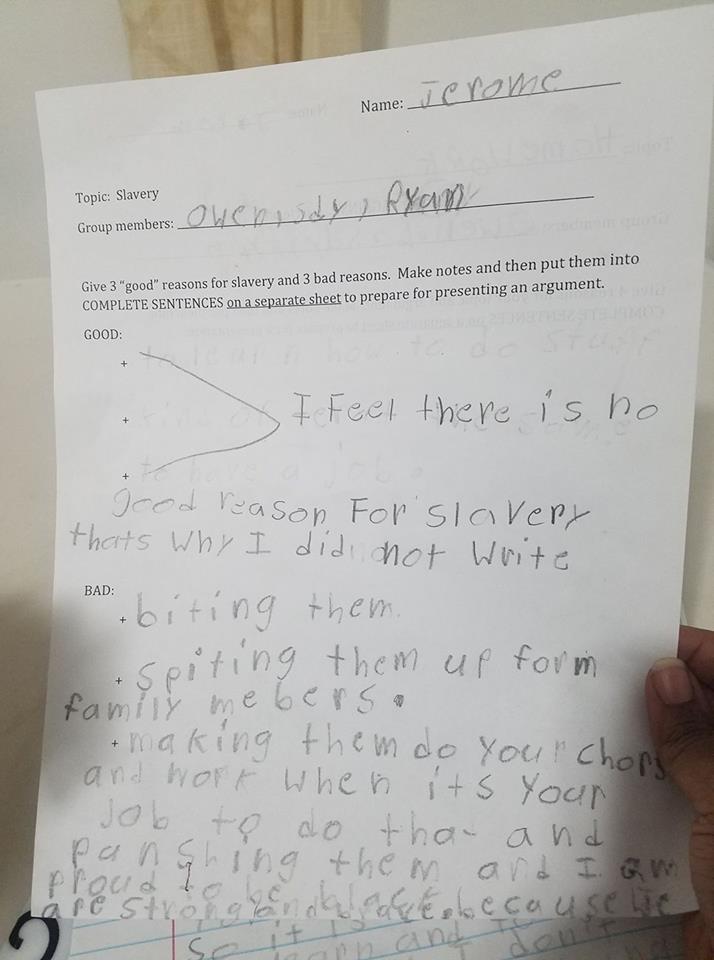 Name: Jerome
Topic: Slavery
Group members: Owen, sdy, Ryan
Give 3 “good” reasons for slavery and 3 bad reasons. Make notes and then put them into
COMPLETE SENTENCES on a separate sheet to prepare for presenting an argument.
GOOD:
+ to learn how to do stuff
+ I Feel there is no
+ to have a job.
good reason For slavery
thats Why I did not Write
BAD:
+ biting them.
+ spiting them up form
family mebers.
+ making them do your chors
and work when its your
Job to do that and
panshing them and I am
proud to be black because we
are strong and
so it
and I don't